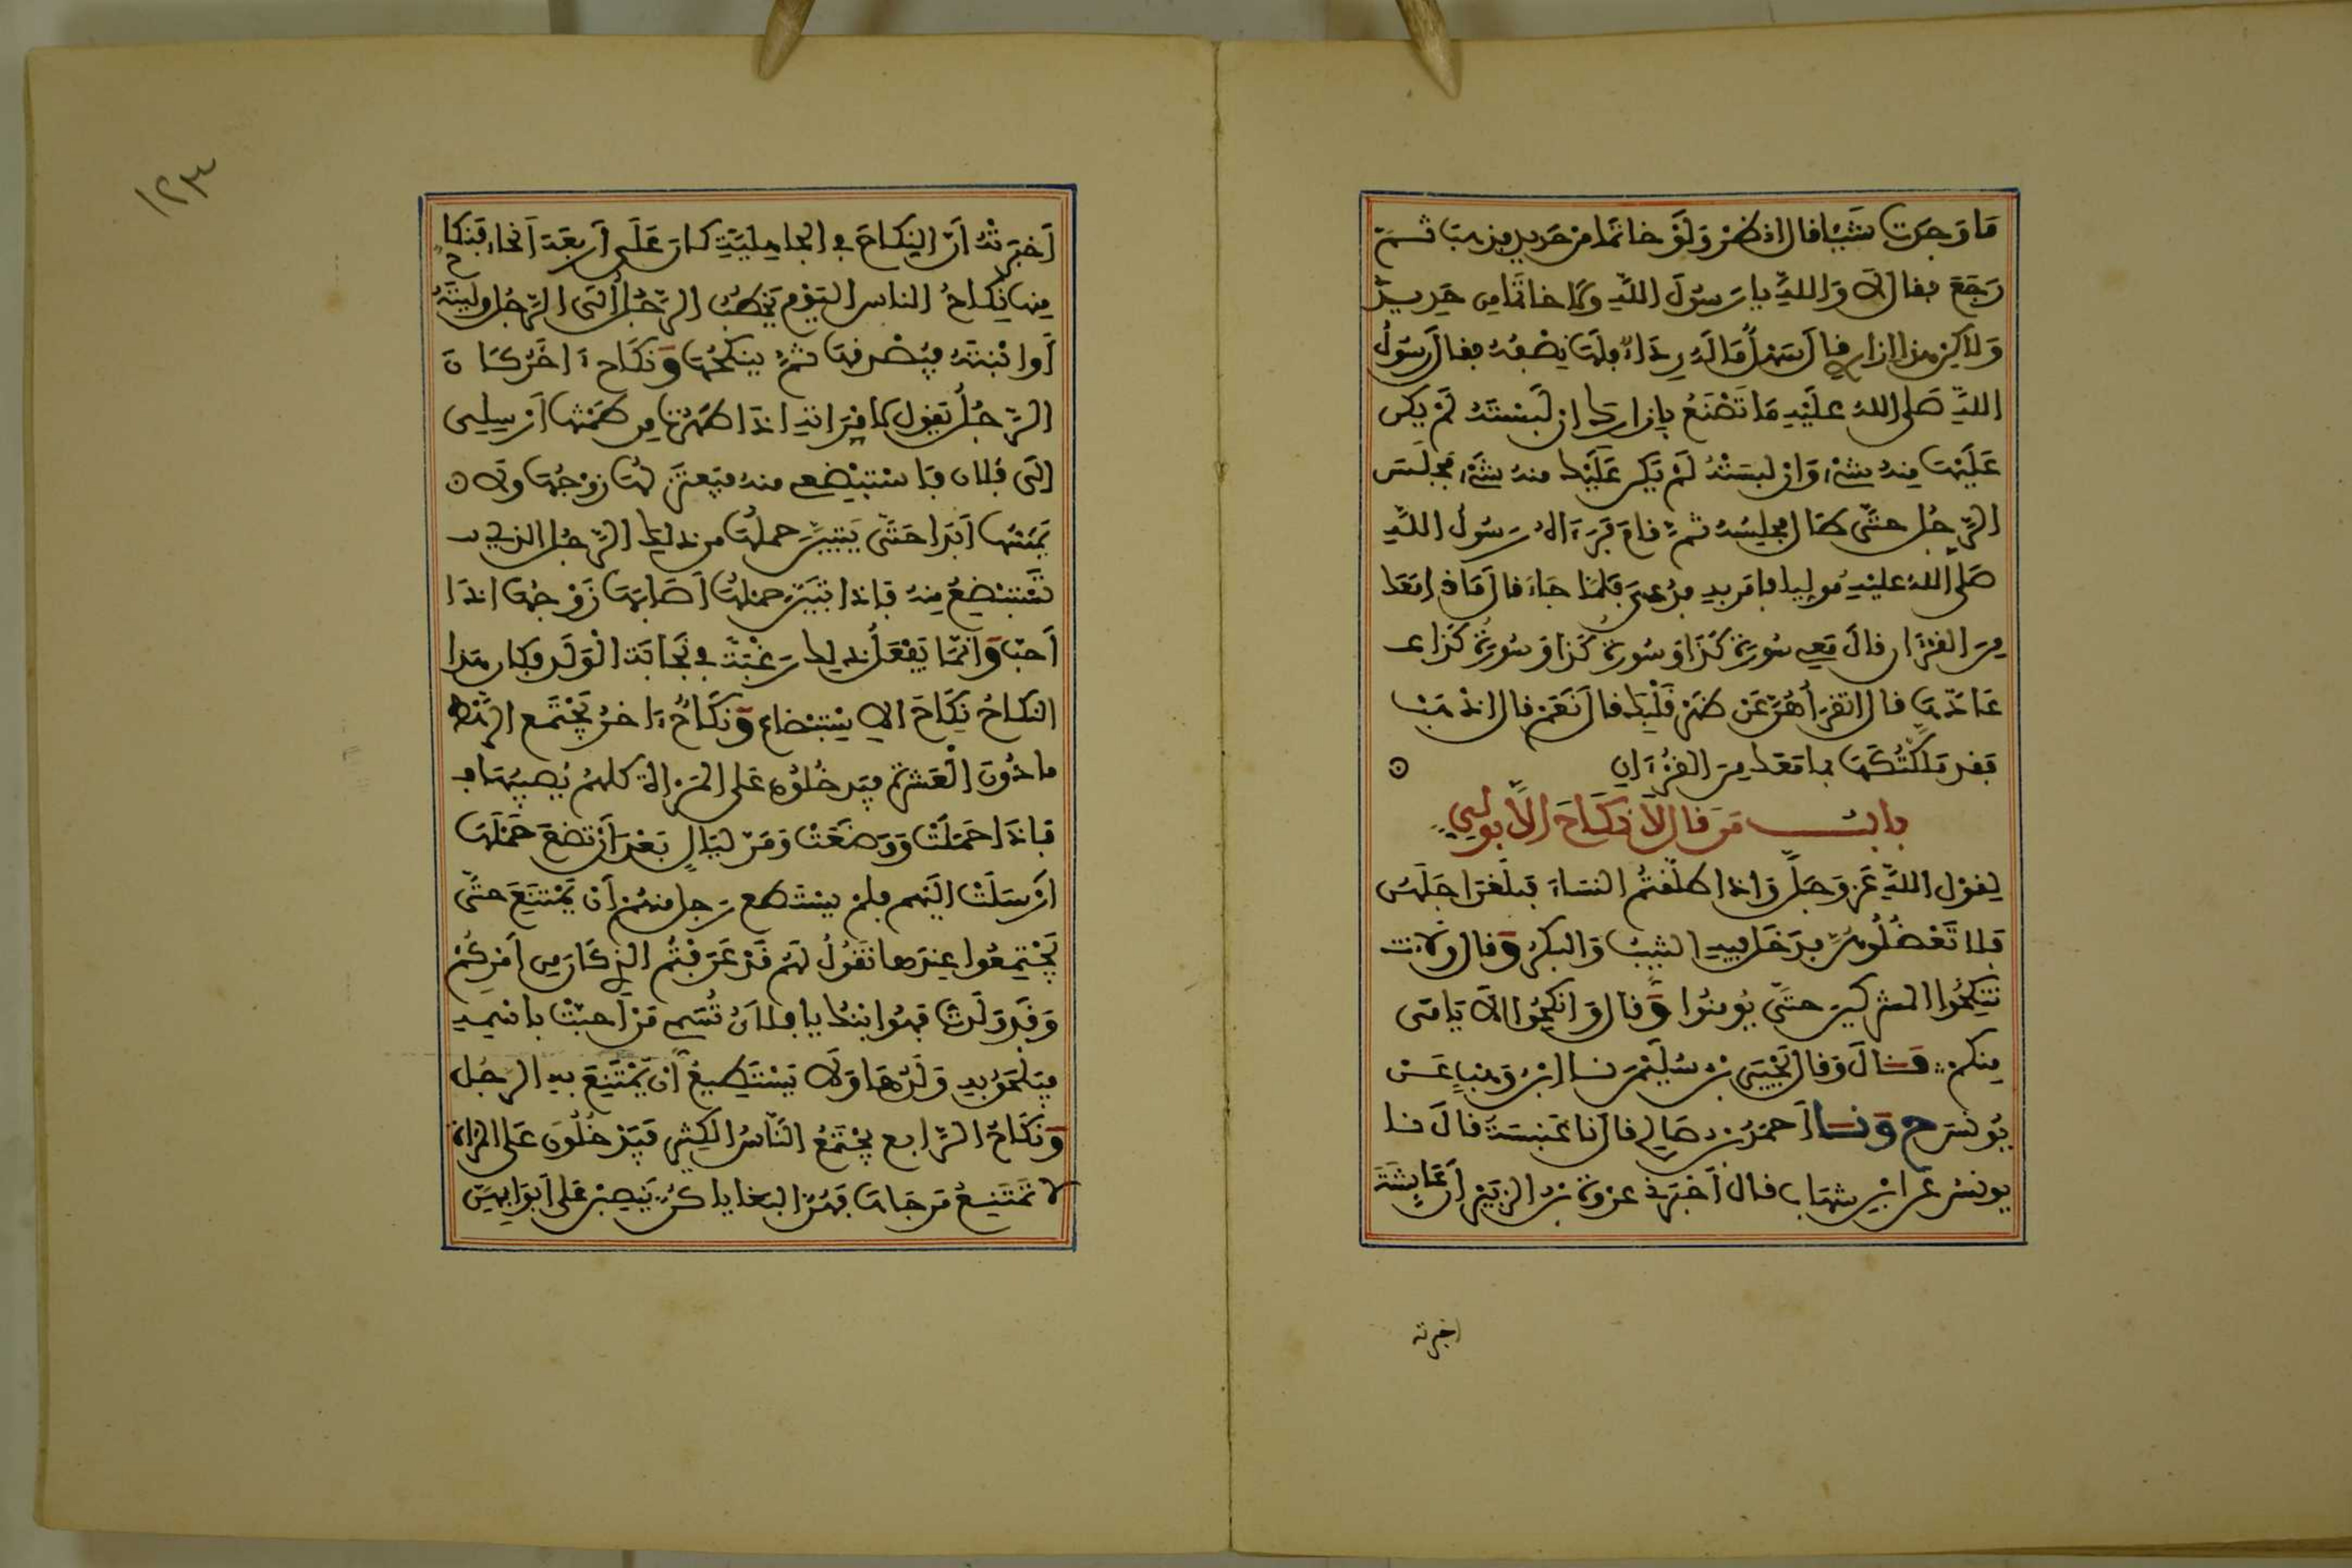 مَا وَجَدت شَيْئا قال اذهَبْ وَلَوْ خاتَما مِنْ حَدِيدٍ فذهب ثُمَّ
رَجَعَ فقال لا وَاللهِ يا رَسُولَ اللهِ ولا خاتما من حَدِيدٍ
وَلاكِن هذا ازاري قال سَهْلٌ مَا لَهُ رِدَاءٌ فلها نِصْفُهُ فقال رَسُولُ
اللهِ صَلى اللهُ عليْهِ مَا تَصْنَعُ بِإزارك ان لَبِسْتَهُ لَمْ يكن
عَلَيْهَا مِنهُ شىْء وَانْ لبسَتْهُ لَمْ يَكن عَلَيْك منهُ شىْء فجَلَسَ
الرَّجُل حتَّى طال مجلِسُهُ ثمَّ قامَ فَرَءَاهُ رَسُولُ اللهِ
صَلى اللهُ عليْهِ مُوليا فامَر بِهِ فدُعىَ فلمَّا جَاءَ قال مَاذا مَعَك
مِنَ القرْءَان قالَ مَعِى سُورَة كَذَا وَسُورَة كَذا وَسُورَة كَذا عـ
عَادّهَا قال اتقرَأُهُنَّ عَنْ ظهْر قَلْبِك قالَ نَعَمْ قال اذْهَبْ
فقد مَلَّكْتُكَهَا بما مَعَك مِنَ القُرْءَانِ
بابُ مَن قال لَا نِكَاحَ الَّا بولىٍ
لِقوْل اللهِ عَزَّ وَجَلَّ وَاذا طلّقتُمُ النسَاءَ فبلَغنَ اجَلَهُن
فلا تَعْضُلُوهُنَّ فدَخَل فيهِ الثيبُ وَالبكر وَقال ولَا ت
تُنكِحُوا المشركينَ حتَّى يُومنُوا وَقال وَانكِحُوا الأَيامَى
مِنكم قَالَ وَقال يَحْيَى بْن سُلَيْمَن نا ابْن وَهْبٍ عَنْ
يُونسَ ح وَنا أحمَدُ بن صَالِح قال نا عَنبَسَةُ قالَ نا
يونس عَن ابْنِ شهَاب قال أخْبَرَنى عرْوَة بن الزبَيْر أن عَايِشَةَ
اخبرته
١٢٣
أخْبَرَتْهُ أنَّ النِكَاحَ فى الجاهِليَّةِ كانَ عَلَى أرْبَعَة أنحاء فنكاح
مِنها نِكاحُ الناس اليَوْم يَخْطُبُ الرَّجُل إلَى الرَّجُل ولِيَّتَهُ
أو ابْنتَهُ فيُصْدِقهَا ثمَّ ينكحُهَا وَنِكَاح ءَاخَرُ كَانَ
الرَّجُلُ يَقول لامْرَاتِهِ اذَا طَهُرَتْ مِن طَمْثِهَا أرْسِلِى
إلَى فلان فاسْتَبْضِعِى منهُ فيعتزلُهَا زوْجُهَا ولا
يَمَسّهَا أبَدا حَتَّى يَتبيَّنَ حملُهَا من ذلِك الرَّجُل الذى
تَسْتَبْضِعُ مِنهُ فاِذا تبَيَّن حمْلُها أصَابَهَا زَوْجُهَا اذَا
أحَبّ وَانَّمَا يَفْعَلُ ذلِك رَغْبَةً فى نَجابَة الْوَلَد فكان هَذا
النكاحُ نِكَاحَ الاسْتِبْضاع وَنكَاحٌ ءَاخَرُ يَجْتَمع الرَّهْط
ما دُونَ الْعَشرَة فيَدخُلُون عَلى المَرْأة كلهُم يُصِيبُهَا
فاذَا حَمَلَتْ وَوَضَعَتْ وَمَرّ ليَالٍ بَعْدَ أنْ تَضَعَ حَمْلَهَا
أرْسَلَتْ اليْهم فلمْ يسْتطع رَجل منهُم أنْ يَمْتنِعَ حتَّى
يَجْتِمعُوا عِندَها تَقُولُ لَهُم قَدْ عَرَفتُم الذى كانَ من أمْرِكُمْ
وَقد وَلَدتُ فهُوَ ابْنُك يا فلانُ تُسَمّى مَنْ أحَبَّتْ باسْمِهِ
فيَلحَقُ بِهِ وَلَدُهَا وَلا يَسْتَطِيعُ أنْ يَمْتَنِعَ بهِ الرجُل
وَنكَاحُ الرَّابع يجْتَمعُ النَّاسُ الكثير فيَدْخُلُونَ عَلى المرأة
لا تَمْتَنِعُ مَن جَاءَهَا وَهُنَّ البَغايا كُنّ يَنصِبْنَ عَلى أبوَابِهِنَّ